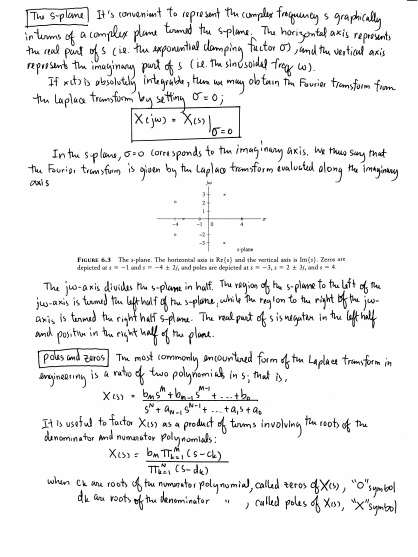 The s-plane It's convenient to represent the complex frequency s graphically
in terms of a complex plane termed the s-plane. The horizontal axis represents
the real part of s (i.e. the exponential damping factor σ), and the vertical axis
represents the imaginary part of s (i.e. the sinusoidal freq ω).
If x(t) is absolutely integrable, then we may obtain the Fourier transform from
the Laplace transform by setting σ=0;
X(jω) = X(s)|σ=0
In the s-plane, σ=0 corresponds to the imaginary axis. We thus say that
the Fourier transform is given by the Laplace transform evaluated along the imaginary
axis
jω
3
2
1
-4 -1 0 4 σ
-2
-3
s-plane
FIGURE 6.3 The s-plane. The horizontal axis is Re{s} and the vertical axis is Im{s}. Zeros are
depicted at s = −1 and s = −4 ± 2j, and poles are depicted at s = −3, s = 2 ± 3j, and s = 4.
The jω-axis divides the s-plane in half. The region of the s-plane to the left of the
jω-axis is termed the left half of the s-plane, while the region to the right of the jω-
axis is termed the right half s-plane. The real part of s is negative in the left half
and positive in the right half of the plane.
poles and zeros The most commonly encountered form of the Laplace transform in
engineering is a ratio of two polynomials in s; that is,
X(s) = (b_M s^M + b_{M-1} s^{M-1} + ... + b_0) / (s^N + a_{N-1} s^{N-1} + ... + a_1 s + a_0)
It is useful to factor X(s) as a product of terms involving the roots of the
denominator and numerator polynomials:
X(s) = b_M Π_{k=1}^M (s-c_k) / Π_{k=1}^N (s-d_k)
when ck are roots of the numerator polynomial, called zeros of X(s), "O" symbol
dk are roots of the denominator " , called poles of X(s), "X" symbol